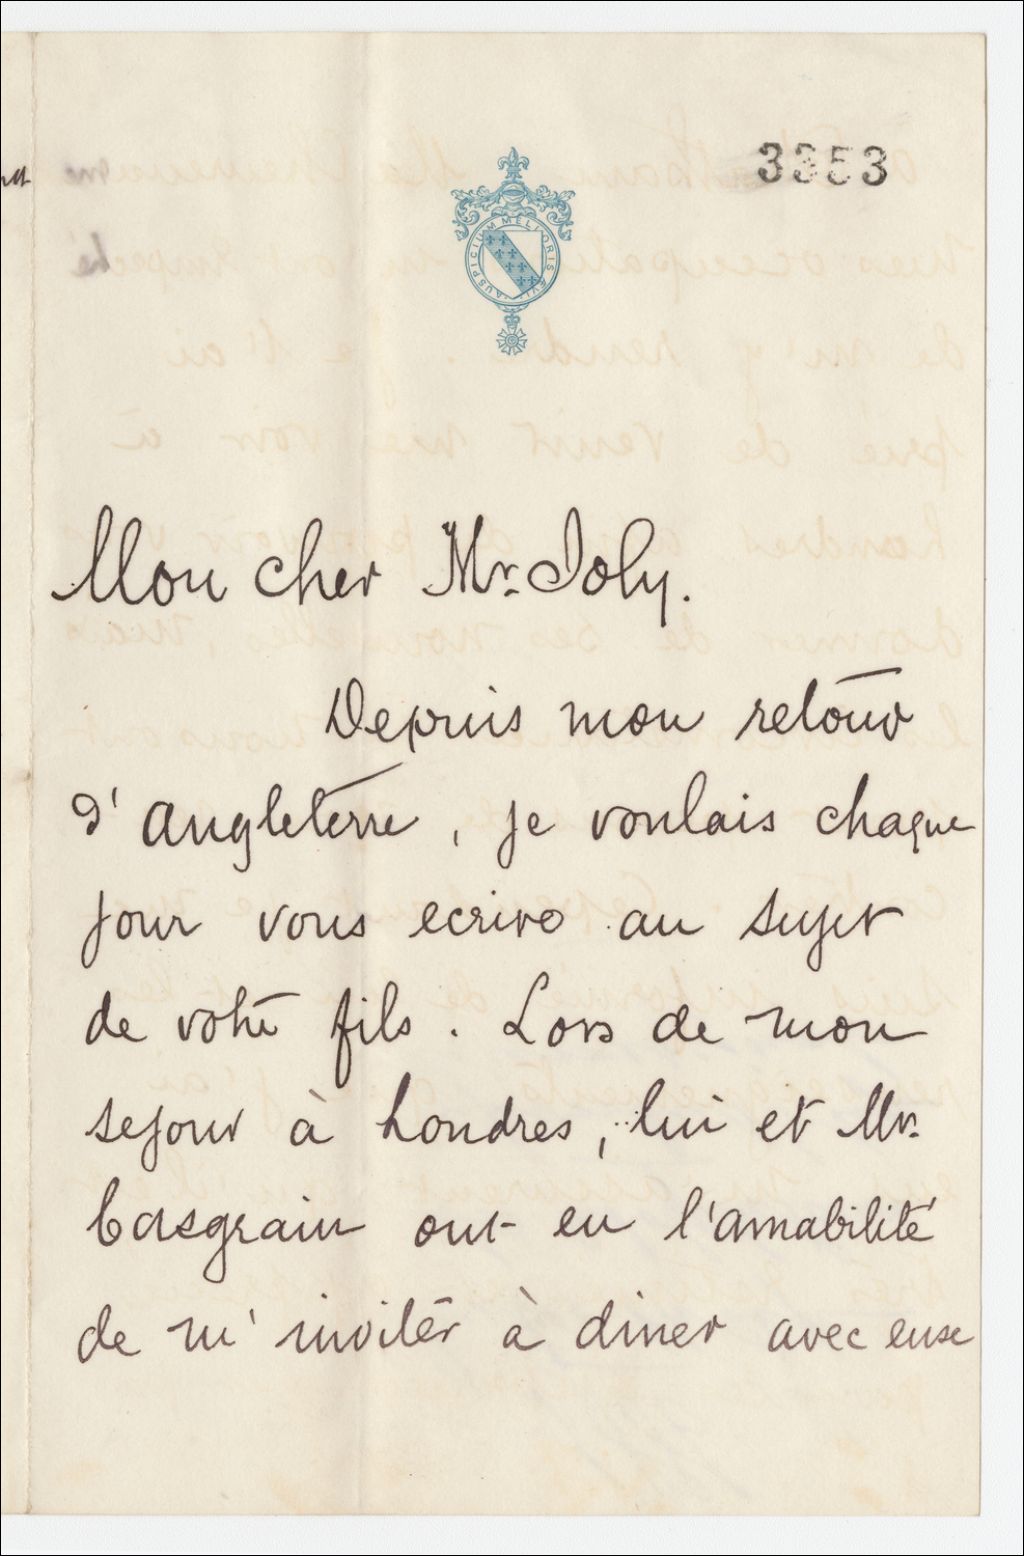 3353
AUSPICIUM MELIORIS ÆVI
Mon cher Mr. Joly.
Depuis mon retour
d'Angleterre, je voulais chaque
jour vous ecrire au sujet
de votre fils. Lors de mon
sejour à Londres, lui et Mr.
Casgrain ont eu l'amabilité
de m'inviter à diner avec eux